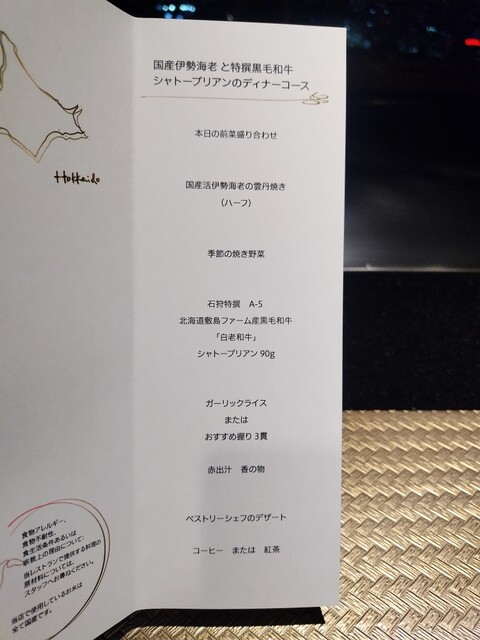 国産伊勢海老 と特撰黒毛和牛
シャトーブリアンのディナーコース
本日の前菜盛り合わせ
国産活伊勢海老の雲丹焼き
（ハーフ）
季節の焼き野菜
石狩特撰　A-5
北海道敷島ファーム産黒毛和牛
「白老和牛」
シャトーブリアン 90g
ガーリックライス
または
おすすめ握り 3貫
赤出汁　香の物
ペストリーシェフのデザート
コーヒー　または　紅茶
Hokkaido
食物アレルギー、
食物不耐性、
食生活条件あるいは
宗教上の理由について:
当レストランで提供する料理の
原材料については、
スタッフへお尋ねください。
当店で使用しているお米は
全て国産です。